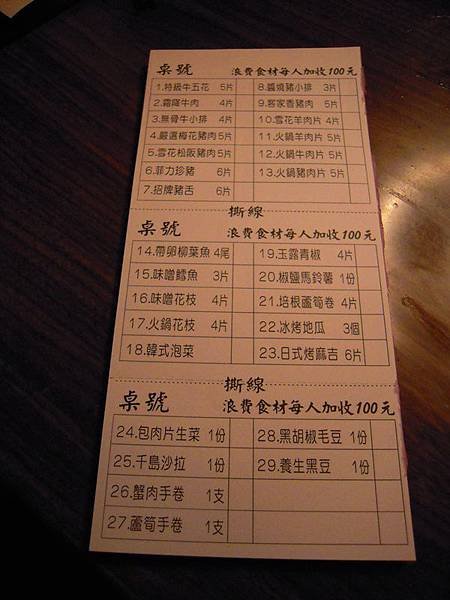 桌號 浪費食材每人加收100元
1.特級牛五花 5片 8.醬燒豬小排 3片
2.霜降牛肉 4片 9.客家香豬肉 5片
3.無骨牛小排 4片 10.雪花羊肉片 4片
4.嚴選梅花豬肉 5片 11.火鍋羊肉片 5片
5.雪花松阪豬肉 5片 12.火鍋牛肉片 5片
6.菲力珍豬 6片 13.火鍋豬肉片 5片
7.招牌豬舌 6片
撕線
桌號 浪費食材每人加收100元
14.帶卵柳葉魚 4尾 19.玉露青椒 4片
15.味噌鱈魚 3片 20.椒鹽馬鈴薯 1份
16.味噌花枝 4片 21.培根蘆筍卷 4片
17.火鍋花枝 4片 22.冰烤地瓜 3個
18.韓式泡菜 23.日式烤麻吉 6片
撕線
桌號 浪費食材每人加收100元
24.包肉片生菜 1份 28.黑胡椒毛豆 1份
25.千島沙拉 1份 29.養生黑豆 1份
26.蟹肉手卷 1支
27.蘆筍手卷 1支